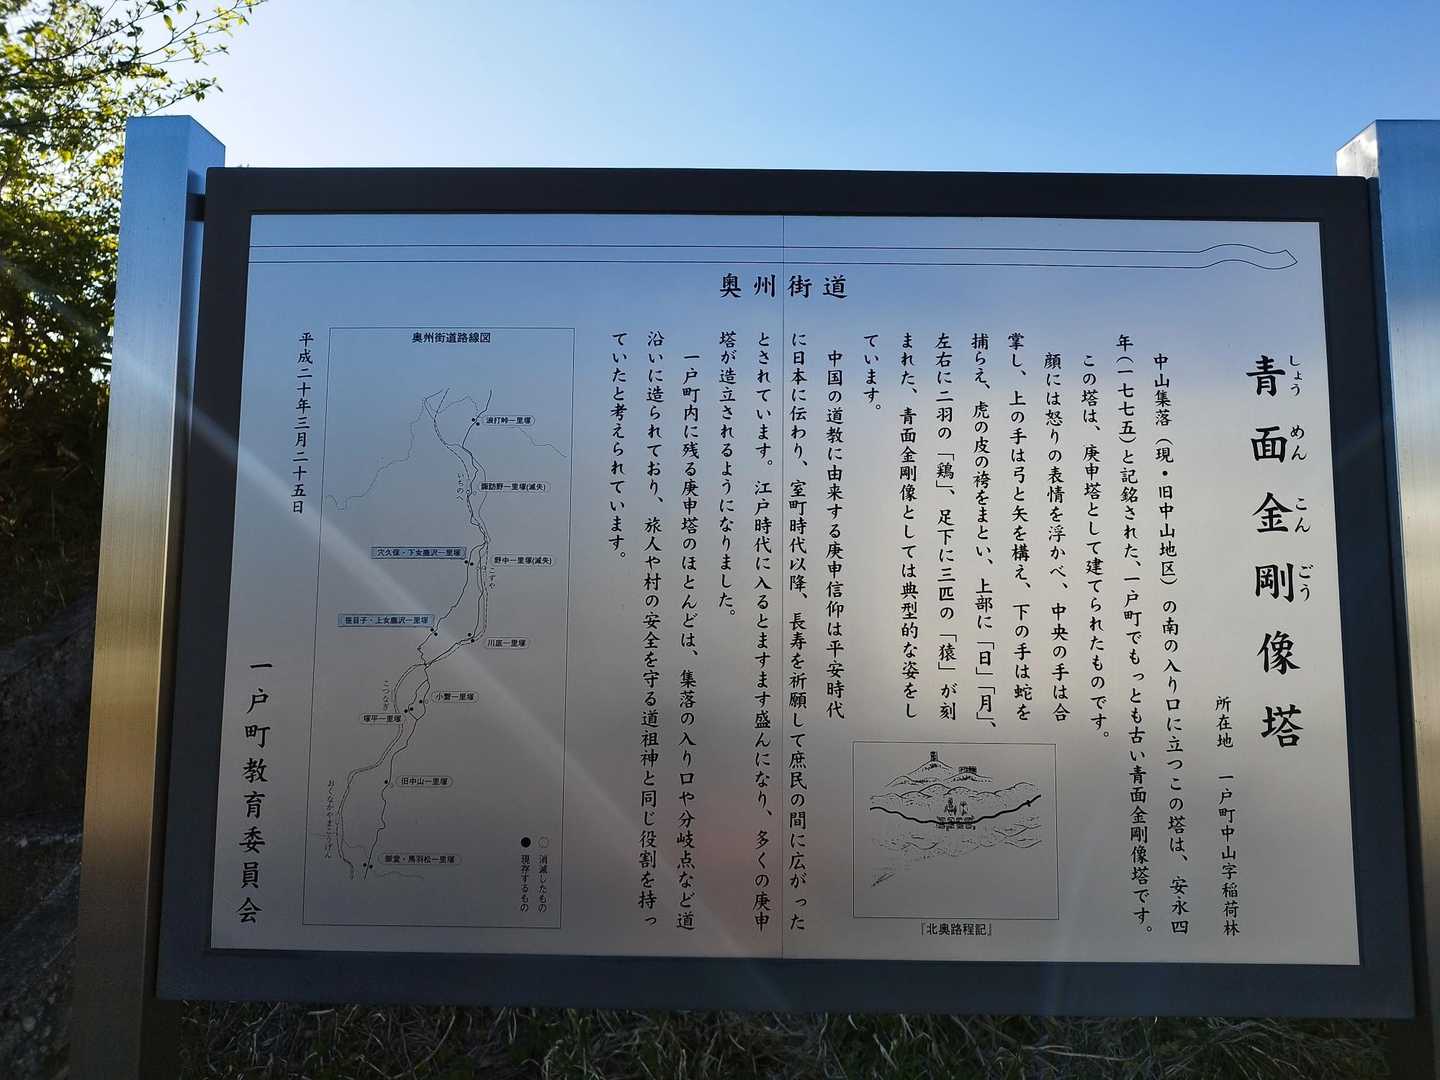 奥州街道
青面金剛像塔
しょう めん こん ごう
所在地 一戸町中山字稲荷林
中山集落（現・旧中山地区）の南の入り口に立つこの塔は、安永四
年（一七七五）と記銘された、一戸町でもっとも古い青面金剛像塔です。
この塔は、庚申塔として建てられたものです。
顔には怒りの表情を浮かべ、中央の手は合
掌し、上の手は弓と矢を構え、下の手は蛇を
捕らえ、虎の皮の袴をまとい、上部に「日」「月」、
左右に二羽の「鶏」、足下に三匹の「猿」が刻
まれた、青面金剛像としては典型的な姿をし
ています。
中国の道教に由来する庚申信仰は平安時代
に日本に伝わり、室町時代以降、長寿を祈願して庶民の間に広がった
とされています。江戸時代に入るとますます盛んになり、多くの庚申
塔が造立されるようになりました。
一戸町内に残る庚申塔のほとんどは、集落の入り口や分岐点など道
沿いに造られており、旅人や村の安全を守る道祖神と同じ役割を持っ
ていたと考えられています。
『北奥路程記』
奥州街道路線図
浪打峠一里塚
いちのへ
諏訪野一里塚(滅失)
穴久保・下女鹿沢一里塚
野中一里塚(滅失)
こずや
笹目子・上女鹿沢一里塚
川底一里塚
こつなぎ
小繋一里塚
塚平一里塚
旧中山一里塚
おくなかやまこうげん
御堂・馬羽松一里塚
○ 消滅したもの
● 現存するもの
平成二十年三月二十五日
一戸町教育委員会